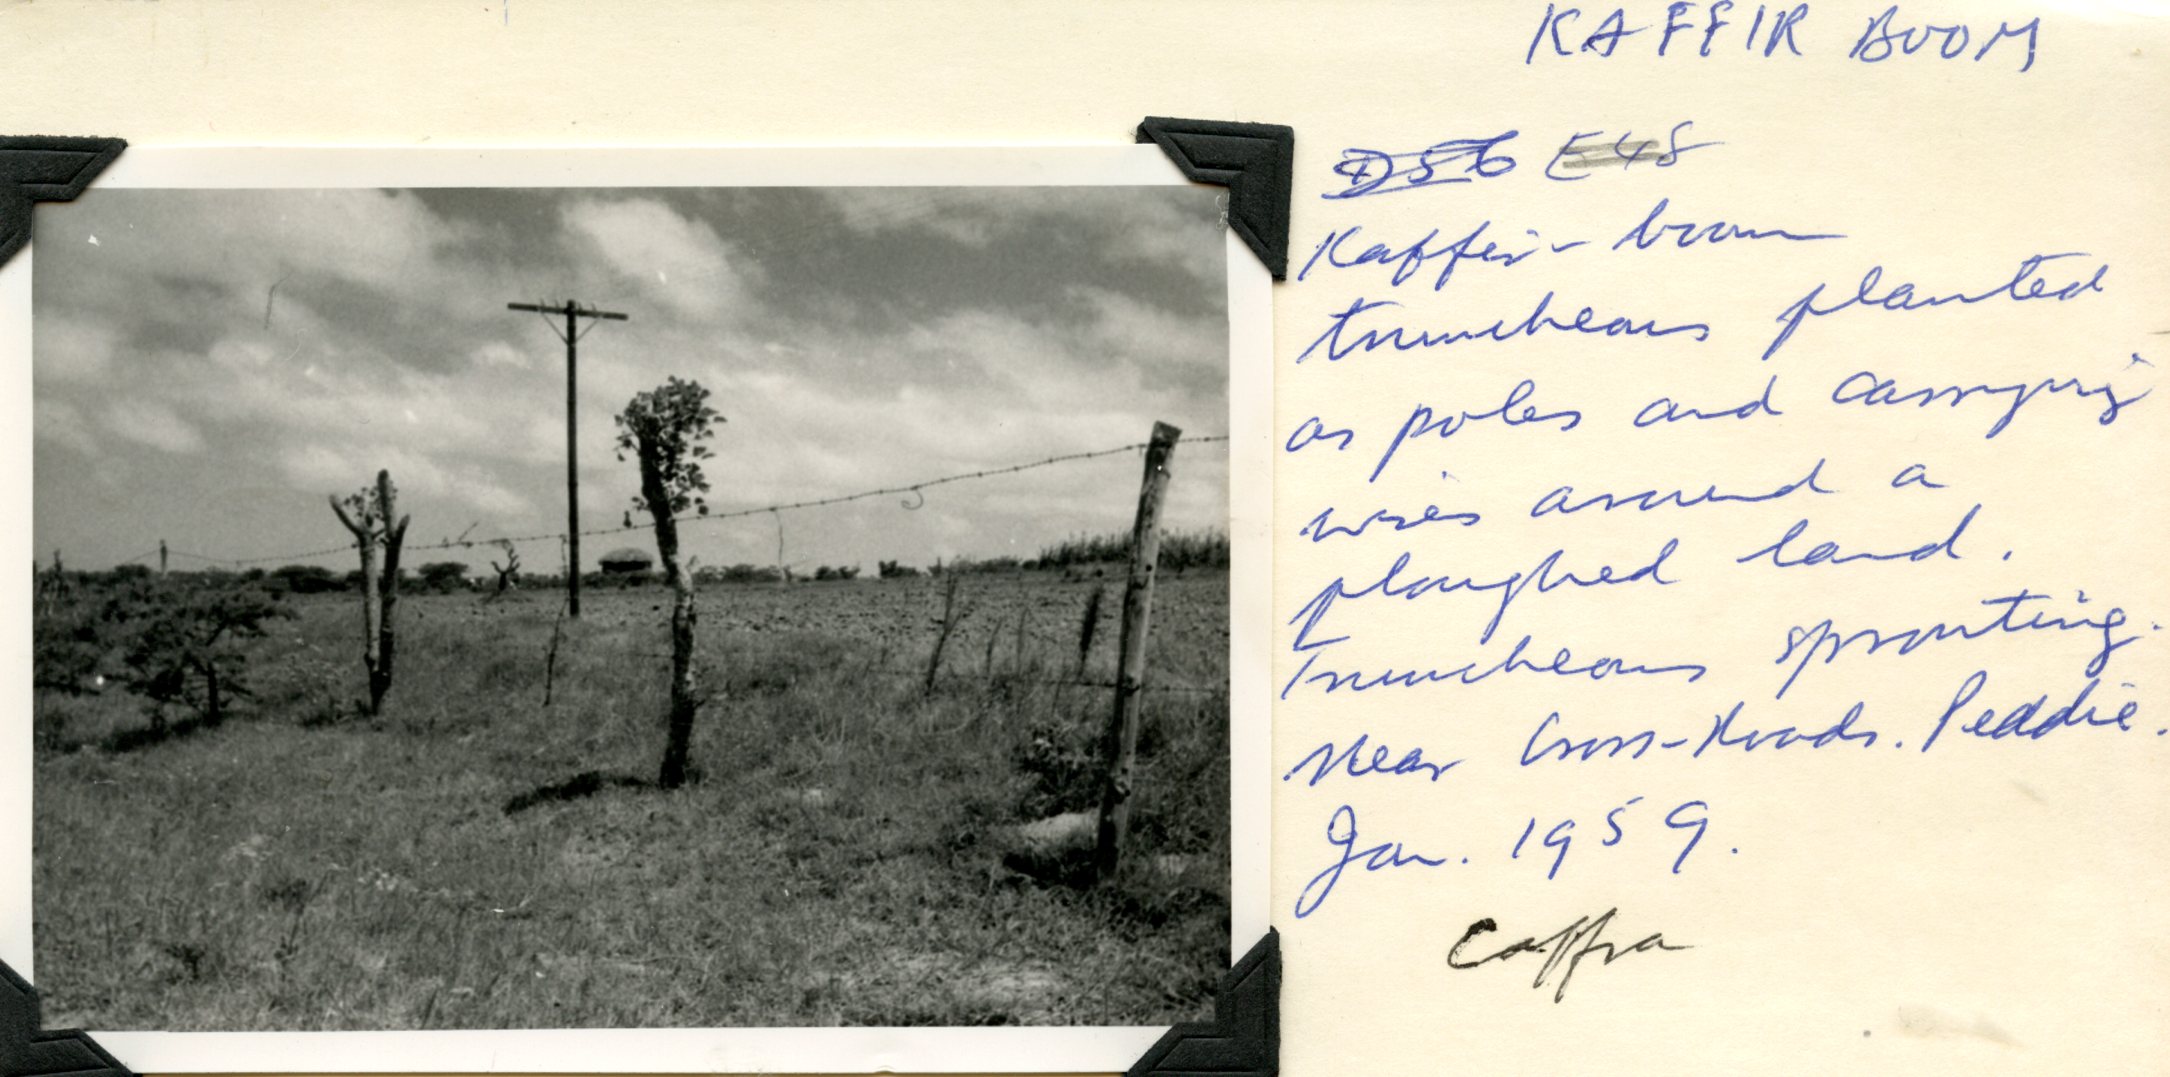 KAFFIR BOOM
D56 E48
Kaffir-boom
truncheons planted
as poles and carrying
wires around a
ploughed land.
Truncheons sprouting.
Near Cross-Roads. Peddie.
Jan. 1959.
Caffra